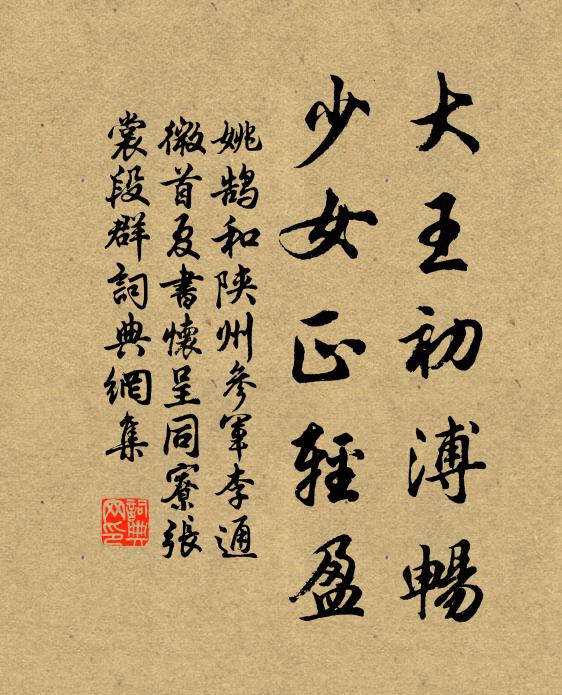 大王初溥暢
少女正輕盈
姚鵠和陝州參軍李通
微首夏書懷呈同寮張
裳段群詞典網集
詞典
网印